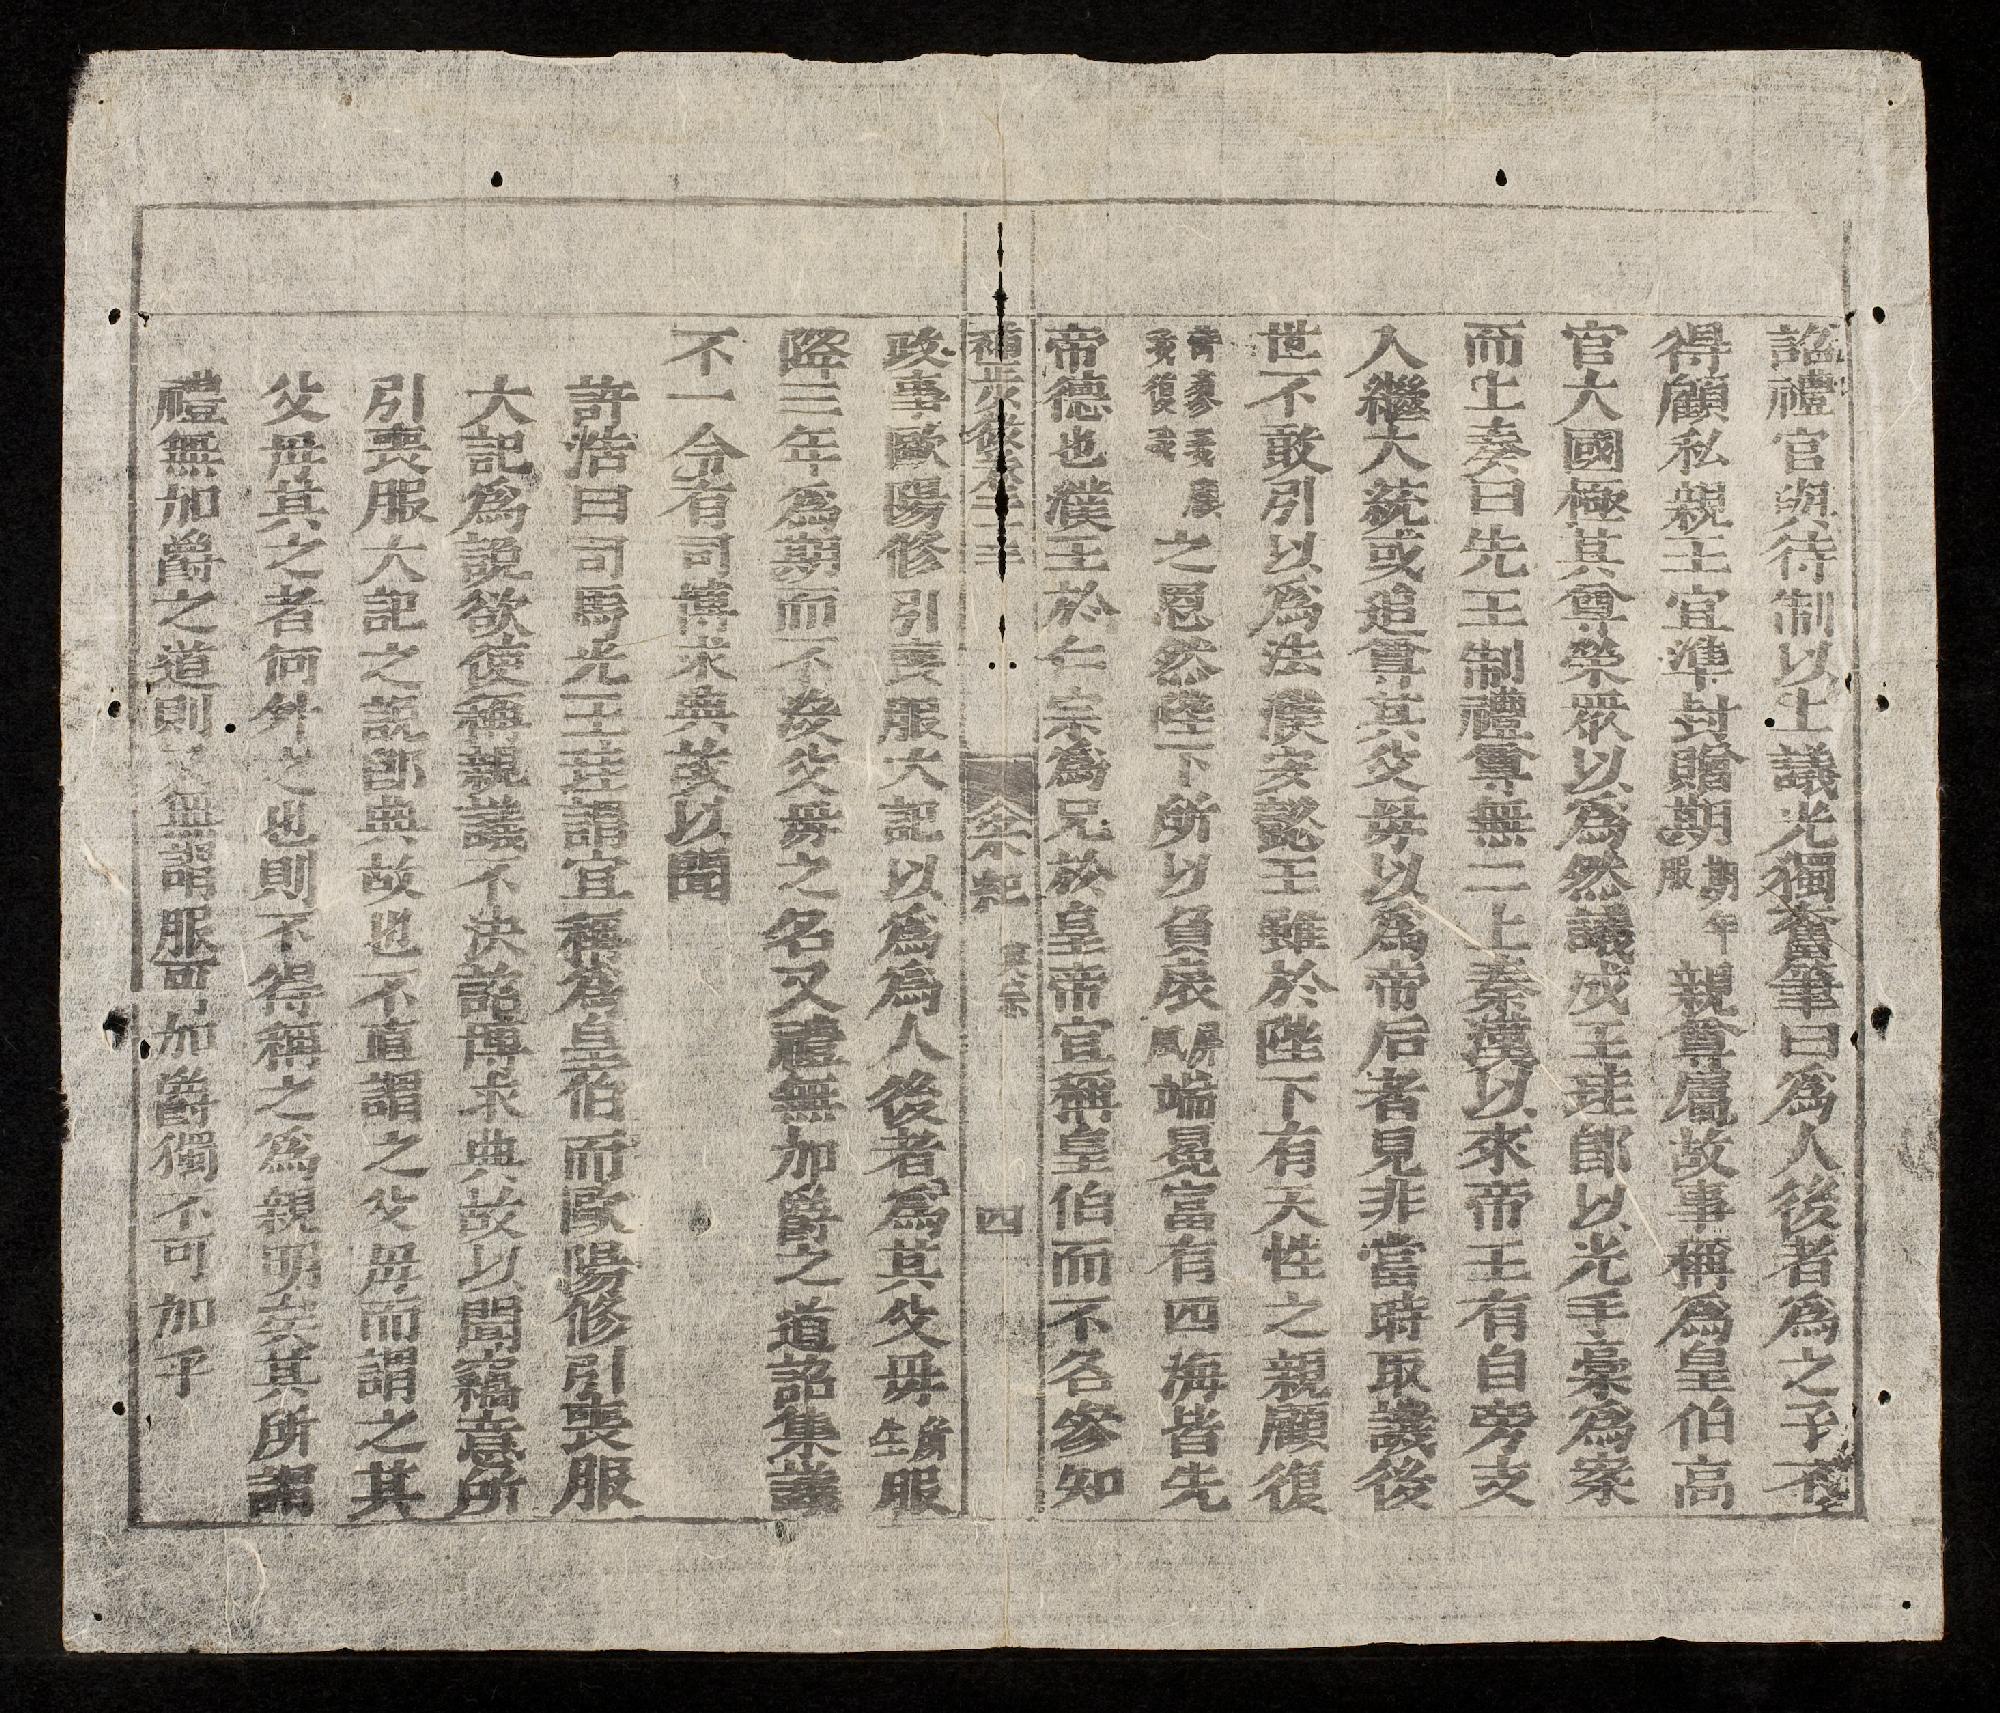 詔禮官與待制以上議光獨奮筆曰爲人後者爲之子不
得顧私親王宜準封贈期期年服親尊屬故事稱爲皇伯高
官大國極其尊榮眾以爲然議成王珪即以光手稾爲案
而上奏曰先王制禮尊無二上秦漢以來帝王有自旁支
入繼大統或追尊其父母以爲帝后者見非當時取議後
世不敢引以爲法濮安懿王雖於陛下有天性之親顧復
之恩然陛下所以負扆屏風端冕富有四海皆先
帝德也濮王於仁宗爲兄於皇帝宜稱皇伯而不名參知
宋紀 英宗 四
政事歐陽修引喪服大記以爲爲人後者爲其父母所生服
降三年爲期而不沒父母之名又禮無加爵之道詔集議
不一令有司博求典故以聞
許浩曰司馬光王珪謂宜稱爲皇伯而歐陽修引喪服
大記爲説欲使稱親議不決詔博求典故以聞竊意所
引喪服大記之説即典故也不直謂之父母而謂之其
父母其之者何外之也則不得稱之爲親明矣其所謂
禮無加爵之道則又無謂服可加爵獨不可加乎